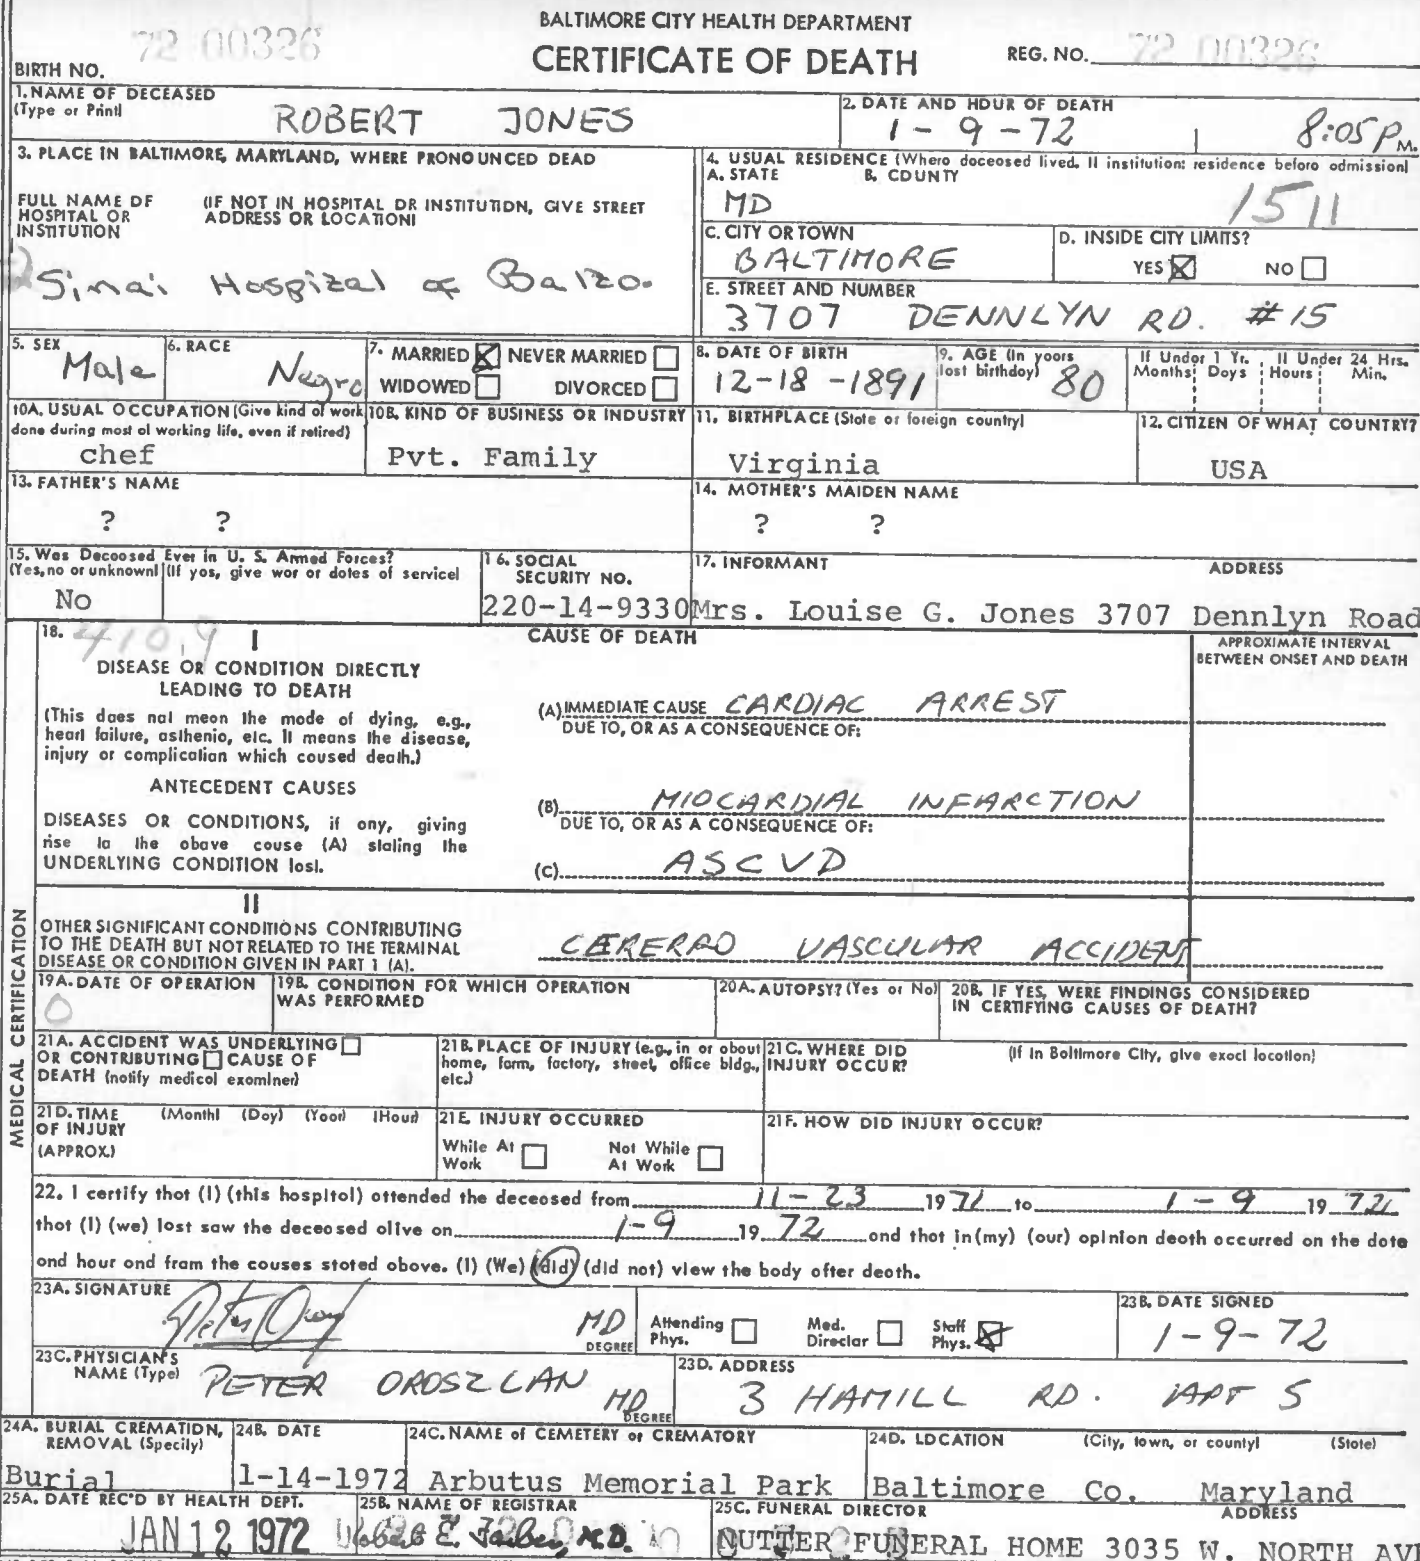 BALTIMORE CITY HEALTH DEPARTMENT
72 00326
CERTIFICATE OF DEATH
REG. NO. 72 00326
BIRTH NO.
1. NAME OF DECEASED
(Type or Print)
ROBERT JONES
2. DATE AND HOUR OF DEATH
1-9-72 8:05 P M.
3. PLACE IN BALTIMORE, MARYLAND, WHERE PRONOUNCED DEAD
FULL NAME OF HOSPITAL OR INSTITUTION
(IF NOT IN HOSPITAL OR INSTITUTION, GIVE STREET ADDRESS OR LOCATION)
Sinai Hospital of Balto.
4. USUAL RESIDENCE (Where deceased lived. If institution: residence before admission)
A. STATE B. COUNTY
MD 1511
C. CITY OR TOWN
BALTIMORE
D. INSIDE CITY LIMITS?
YES ☒ NO ☐
E. STREET AND NUMBER
3707 DENNLYN RD. #15
5. SEX
Male
6. RACE
Negro
7. MARRIED ☒ NEVER MARRIED ☐
WIDOWED ☐ DIVORCED ☐
8. DATE OF BIRTH
12-18-1891
9. AGE (In years last birthday)
80
If Under 1 Yr. If Under 24 Hrs.
Months Days Hours Min.
10A. USUAL OCCUPATION (Give kind of work done during most of working life, even if retired)
chef
10B. KIND OF BUSINESS OR INDUSTRY
Pvt. Family
11. BIRTHPLACE (State or foreign country)
Virginia
12. CITIZEN OF WHAT COUNTRY?
USA
13. FATHER'S NAME
? ?
14. MOTHER'S MAIDEN NAME
? ?
15. Was Deceased Ever in U. S. Armed Forces?
(Yes, no or unknown) (If yes, give war or dates of service)
No
16. SOCIAL SECURITY NO.
220-14-9330
17. INFORMANT ADDRESS
Mrs. Louise G. Jones 3707 Dennlyn Road
MEDICAL CERTIFICATION
18. 410.9
I
CAUSE OF DEATH
APPROXIMATE INTERVAL BETWEEN ONSET AND DEATH
DISEASE OR CONDITION DIRECTLY
LEADING TO DEATH
(This does not mean the mode of dying, e.g.,
heart failure, asthenia, etc. It means the disease,
injury or complication which caused death.)
(A) IMMEDIATE CAUSE CARDIAC ARREST
DUE TO, OR AS A CONSEQUENCE OF:
ANTECEDENT CAUSES
DISEASES OR CONDITIONS, if any, giving
rise to the above cause (A) stating the
UNDERLYING CONDITION last.
(B) MIOCARDIAL INFARCTION
DUE TO, OR AS A CONSEQUENCE OF:
(C) ASCVD
II
OTHER SIGNIFICANT CONDITIONS CONTRIBUTING
TO THE DEATH BUT NOT RELATED TO THE TERMINAL
DISEASE OR CONDITION GIVEN IN PART 1 (A).
CERERRO VASCULAR ACCIDENT
19A. DATE OF OPERATION
0
19B. CONDITION FOR WHICH OPERATION WAS PERFORMED
20A. AUTOPSY? (Yes or No)
20B. IF YES, WERE FINDINGS CONSIDERED IN CERTIFYING CAUSES OF DEATH?
21A. ACCIDENT WAS UNDERLYING ☐
OR CONTRIBUTING ☐ CAUSE OF
DEATH (notify medical examiner)
21B. PLACE OF INJURY (e.g., in or about home, farm, factory, street, office bldg., etc.)
21C. WHERE DID INJURY OCCUR?
(If in Baltimore City, give exact location)
21D. TIME OF INJURY (APPROX.)
(Month) (Day) (Year) (Hour)
21E. INJURY OCCURRED
While At Work ☐ Not While At Work ☐
21F. HOW DID INJURY OCCUR?
22. I certify that (I) (this hospital) attended the deceased from 11-23 1971 to 1-9 1972
that (I) (we) last saw the deceased alive on 1-9 1972 and that in (my) (our) opinion death occurred on the date
and hour and from the causes stated above. (I) (We) (did) (did not) view the body after death.
23A. SIGNATURE
MD
DEGREE
Attending Phys. ☐ Med. Director ☐ Staff Phys. ☒
23B. DATE SIGNED
1-9-72
23C. PHYSICIAN'S NAME (Type)
PETER OROSZLAN MD
DEGREE
23D. ADDRESS
3 HAMILL RD. APT 5
24A. BURIAL CREMATION, REMOVAL (Specify)
Burial
24B. DATE
1-14-1972
24C. NAME of CEMETERY or CREMATORY
Arbutus Memorial Park
24D. LOCATION (City, town, or county) (State)
Baltimore Co. Maryland
25A. DATE REC'D BY HEALTH DEPT.
JAN 12 1972
25B. NAME OF REGISTRAR
Robert E. Farber, M.D.
25C. FUNERAL DIRECTOR ADDRESS
NUTTER FUNERAL HOME 3035 W. NORTH AVE